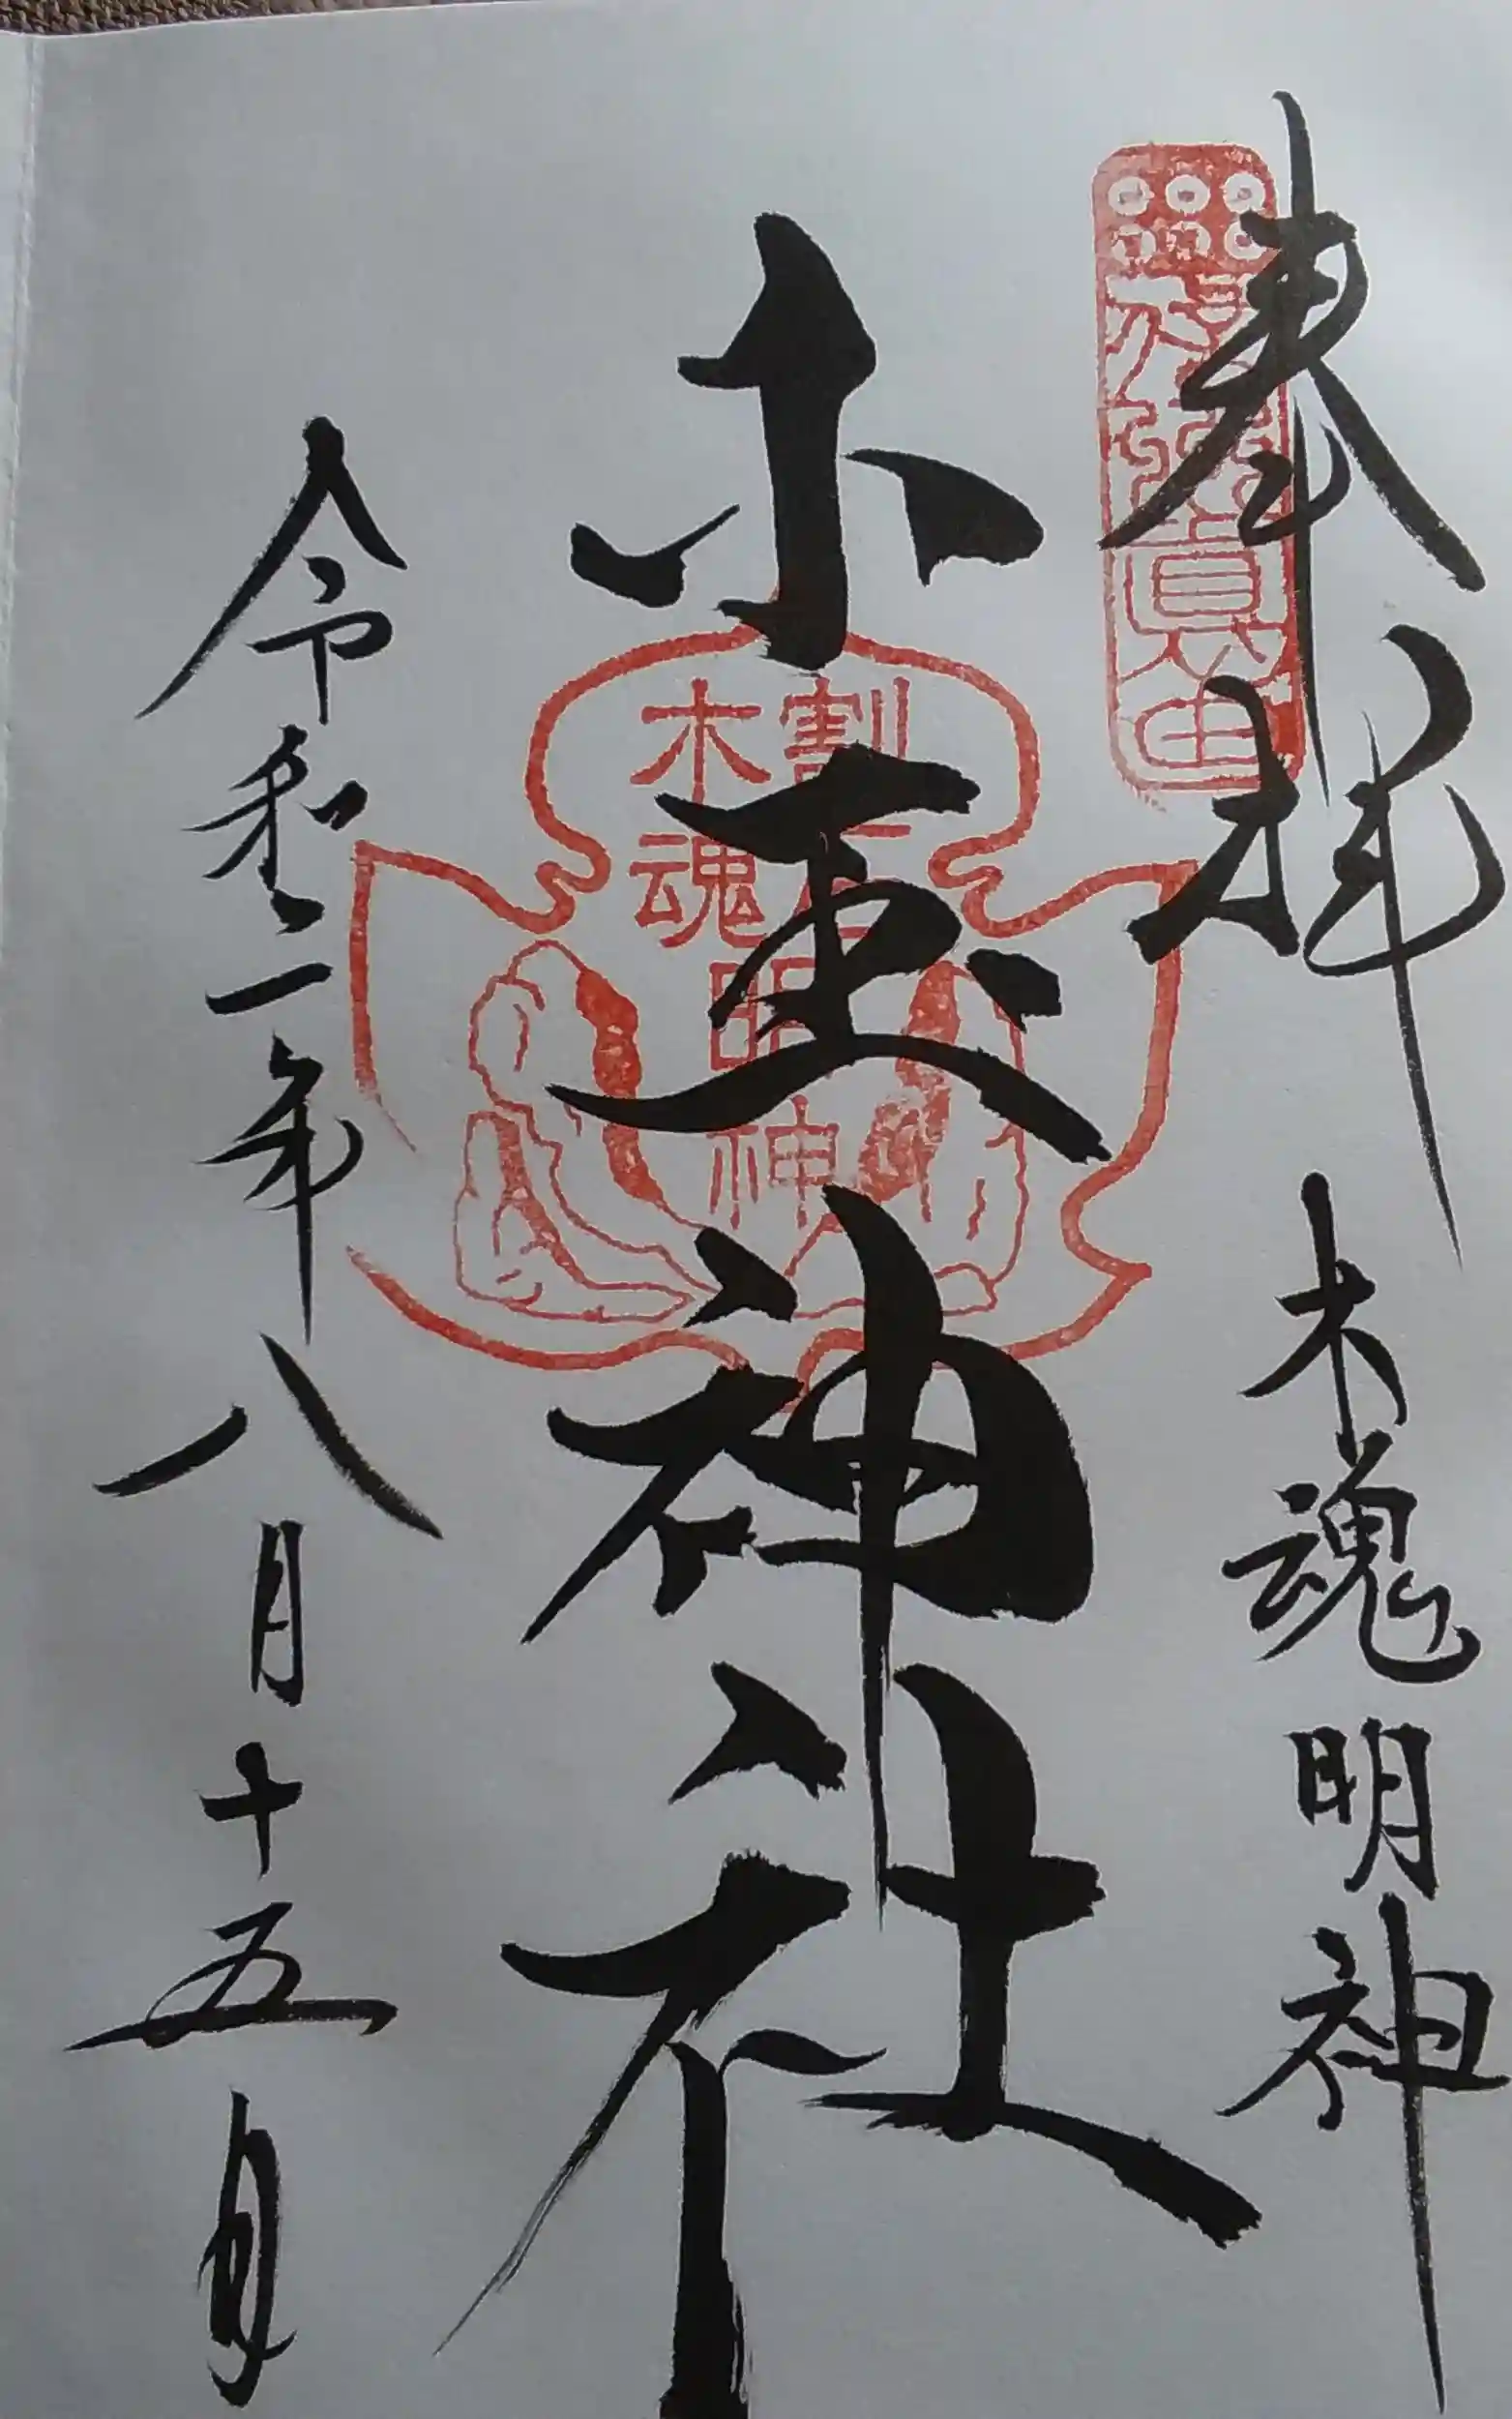 奉拝 木魂明神
木玉神社
令和二年八月十五日
木魂
明神